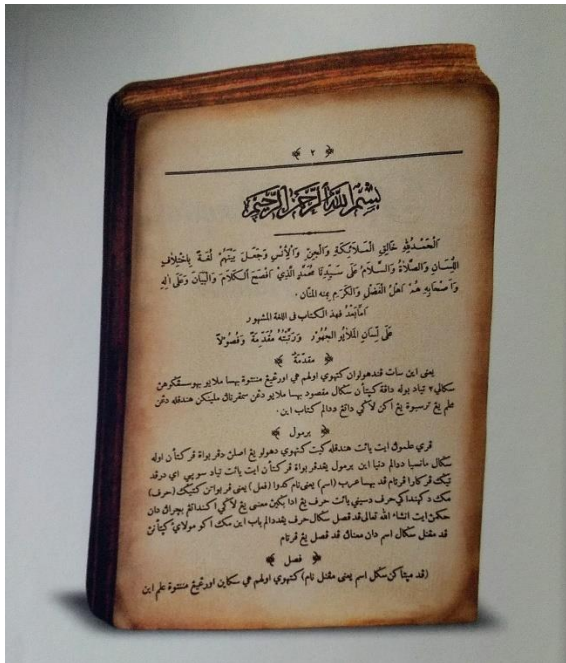 ﴿ ٢ ﴾
بِسْمِ اللهِ الرَّحْمٰنِ الرَّحِيْمِ
اَلْحَمْدُ لِلّٰهِ خَالِقِ الْمَلَائِكَةِ وَالْجِنِّ وَالْاِنْسِ وَجَعَلَ بَيْنَهُمْ لُغَةً بِاخْتِلَافِ
اللِّسَانِ وَالصَّلَاةُ وَالسَّلَامُ عَلَى سَيِّدِنَا مُحَمَّدٍ الَّذِيْ اَفْصَحَ الْكَلَامَ وَالْبَيَانَ وَعَلَى اٰلِهِ
وَاَصْحَابِهِ هُمْ اَهْلُ الْفَضْلِ وَالْكَرَمِ بِمَنِّهِ الْمَنَّانِ ٠
اَمَّا بَعْدُ فهذ الكتاب فى اللغة المشهور
عَلَى لِسَانِ الْمَلَايُوِ الْجُهُوْرِ وَرَتَّبْتُهُ مُقَدِّمَةً وَفُصُوْلًا
﴿ مقدمةٌ ﴾
يعنى اين سات ڤندهولوان كتهوي اولهم هي اورڠيڠ منتوة بهسا ملايو بهوسڤكوهن
سكالي٢ تياد بوله داڤة كيتأن سكال مقصود بهسا ملايو دڠن سمڤرنڽ ملينكن هندقله دڠن
علم يڠ ترسبوة يڠ اكن لاڬي داتڠ ددالم كتاب اين ٠
﴿ برمول ﴾
ڤري علموڽ ايت يأت هندقله كيت كتهوي دهولو يڠ اصلڽ دڤربواة ڤركتأن اوله
سكال مانسيا ددالم دنيا اين برمول يڠدڤربواة ڤركتأن ايت يأت تياد سوڽي اي درڤد
تيڬ ڤركارا ڤرتام ڤد بهسا عرب (اسم) يعنى نام كدوا (فعل) يعنى ڤربواتن كتيڬ (حرف)
مك دكهنداكي حرف دسيني يأت حرف يڠ ادا بڬيڽ معنى يڠ لاڬي اكندانڠ بچراڽ دان
حكمڽ ايت انشاء الله تعالى ڤد فصل سكال حرف يڠددالم باب اين مك اكو مولاي كيتأنڽ
ڤد مڠنل سكال اسم دان معناڽ ڤد فصل يڠ ڤرتام
﴿ فصل ﴾
(ڤد مڽتاكن سكل اسم يعنى مڠنل نام) كتهوي اولهم هي سكاين اورڠيڠ منتوة علم اين